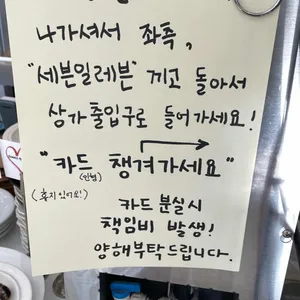 나가셔서 좌측,
"세븐일레븐" 끼고 돌아서
상가 출입구로 들어가세요!
"카드 챙겨가세요"
(인형)
(휴지있어요!)
카드 분실시
책임비 발생!
양해부탁드립니다.